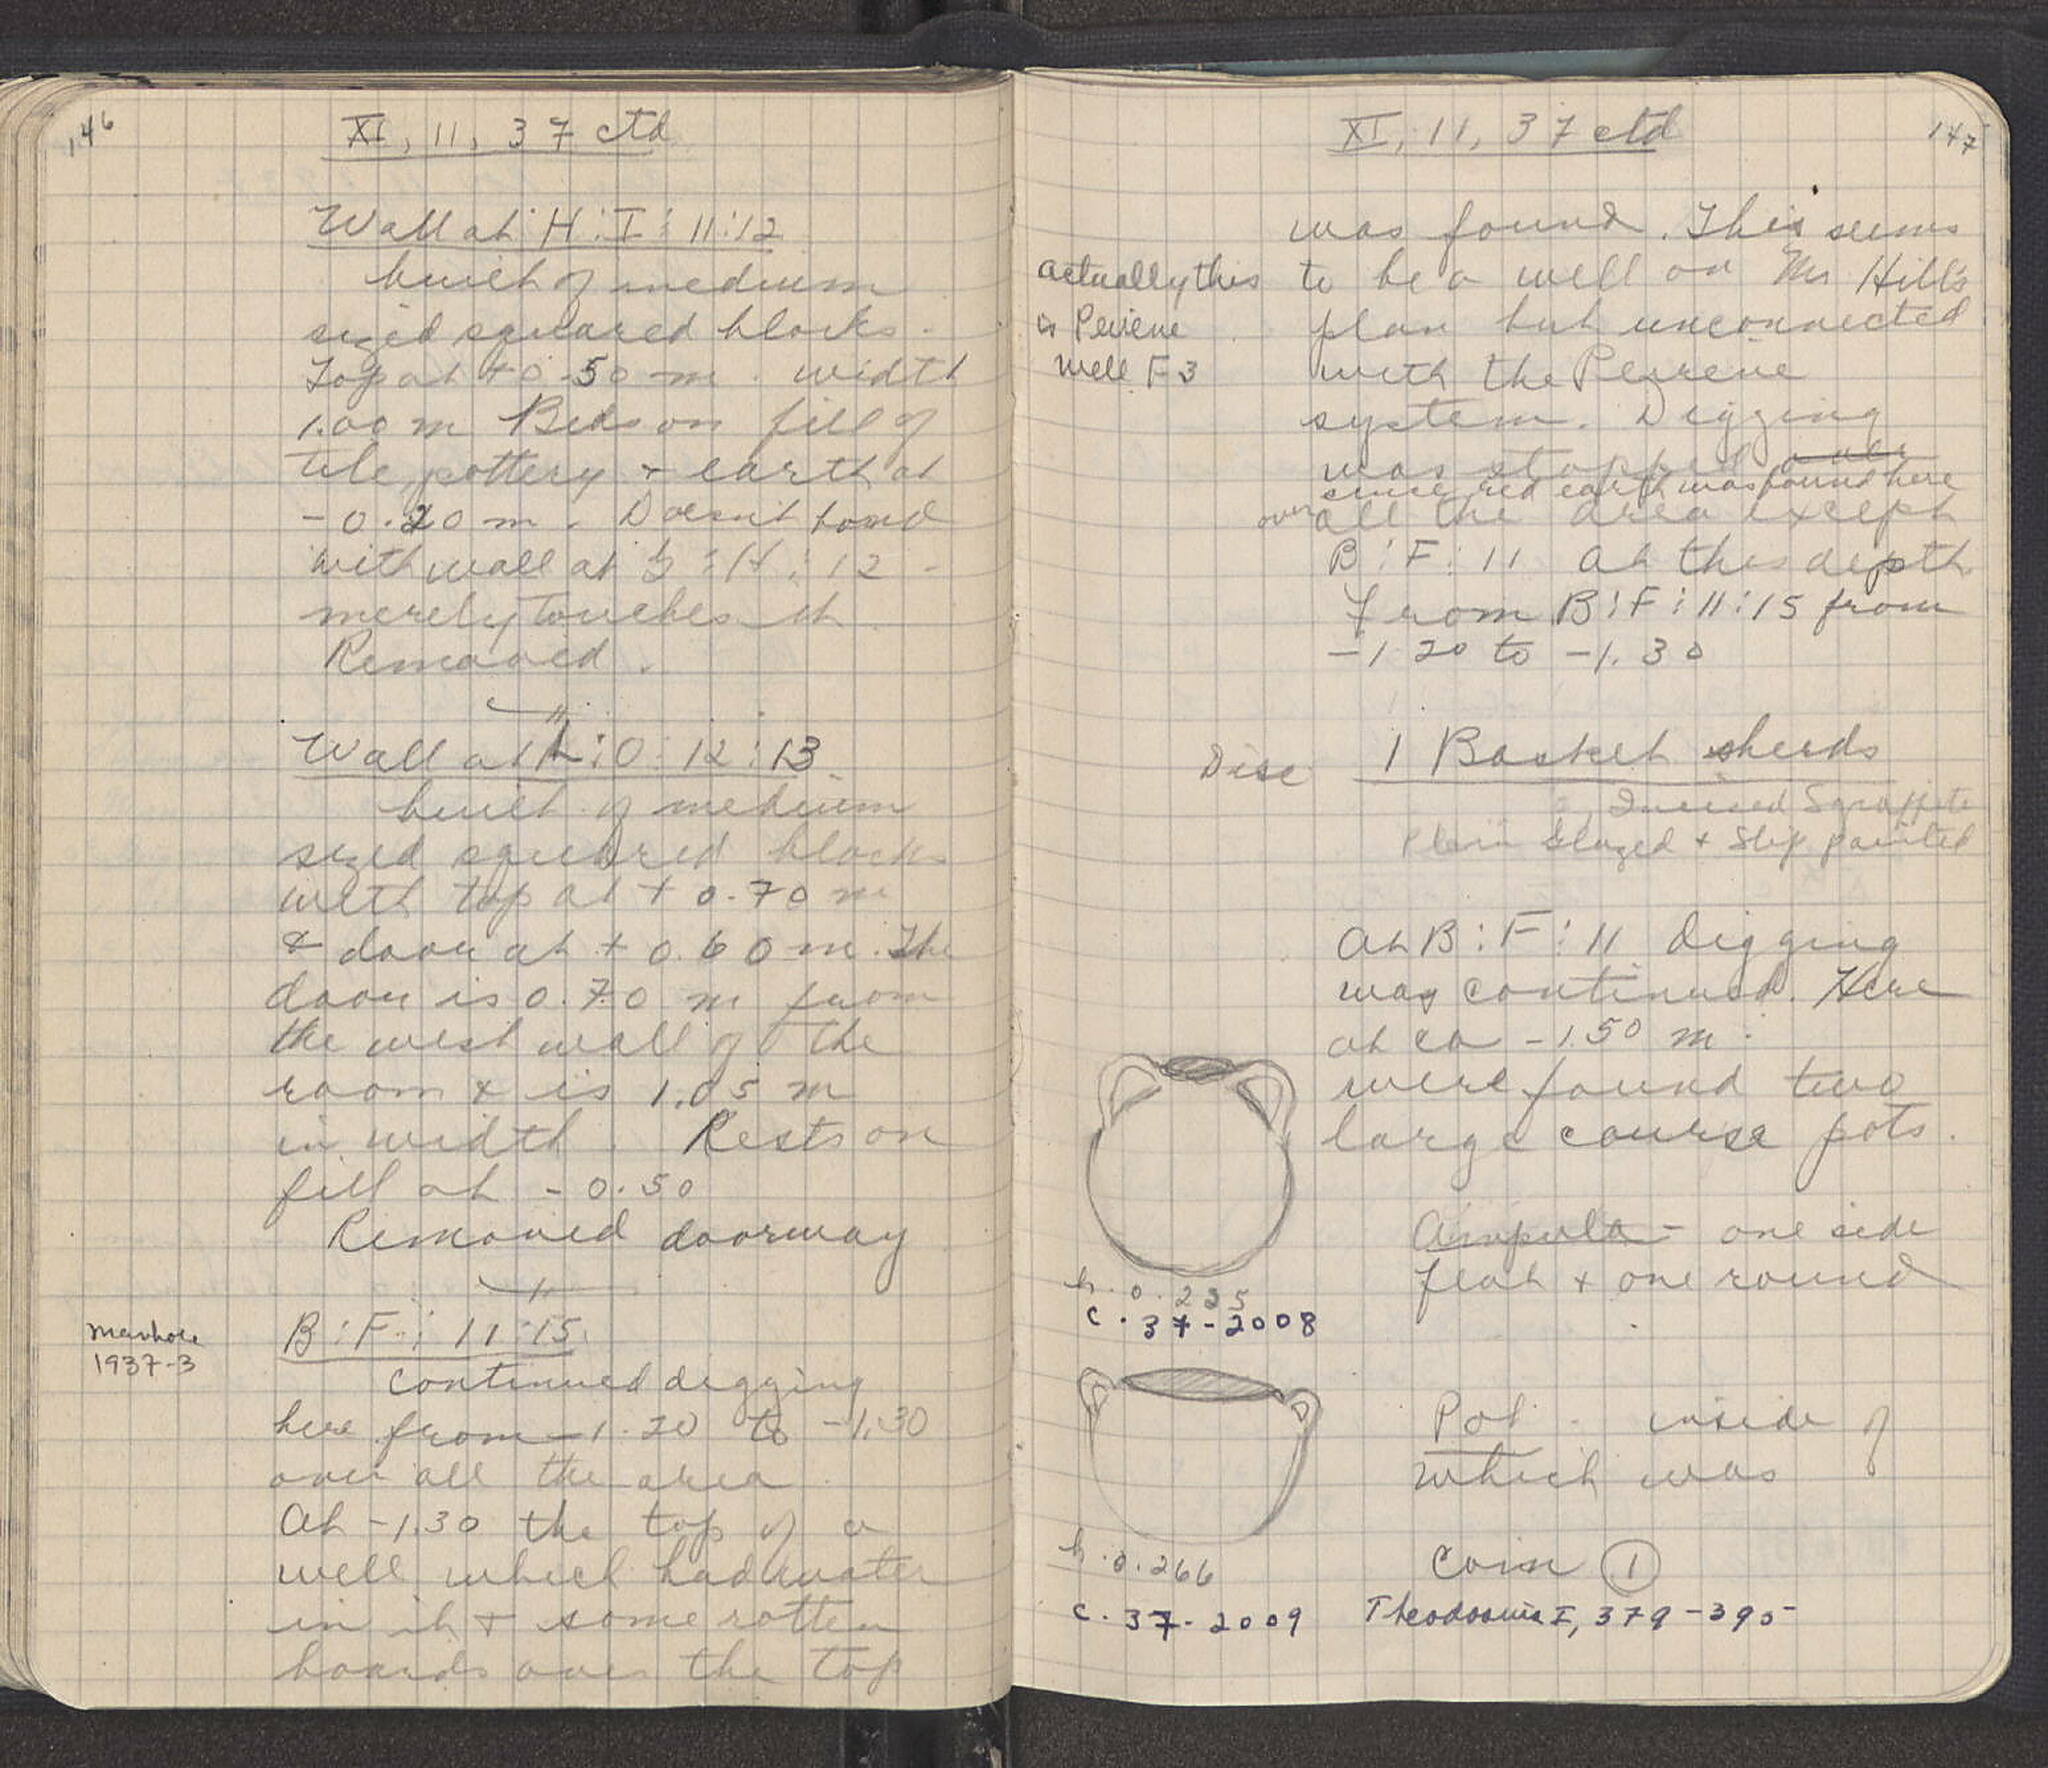 146
XI, 11, 37 ctd
Wall at H:I:11:12
built of medium
sized squared blocks.
Top at +0.50 m. width
1.00 m Beds on fill of
tile, pottery + earth at
-0.20 m. Doesn't bond
with wall at G:H:12 -
merely touches it.
Removed.
Wall at L:O:12:13
built of medium
sized squared blocks
with top at +0.70 m
& door at +0.60 m. The
door is 0.70 m from
the west wall of the
room & is 1.05 m
in width. Rests on
fill at -0.50
Removed doorway
manhole
1937-3
B:F:11:15
continued digging
here from -1.20 to -1.30
over all the area.
At -1.30 the top of a
well which had water
in it + some rotten
boards over the top
147
XI, 11, 37 ctd
was found. This seems
to be a well on Mr Hill's
plan but unconnected
with the Peirene
system. Digging
was stopped
since red earth was found here
over all the area except
B:F:11 at this depth
actually this
is Peirene
well F3
From B:F:11:15 from
-1.20 to -1.30
Disc 1 Basket sherds
Incised Sgraffito
Plain Glazed + Slip painted
At B:F:11 digging
was continued. Here
at ca -1.50 m.
were found two
large course pots.
Ampula - one side
flat + one round
h. 0.225
C. 37-2008
Pot - inside of
which was
h. 0.266
C. 37-2009
Coin 1
Theodosius I, 379-395